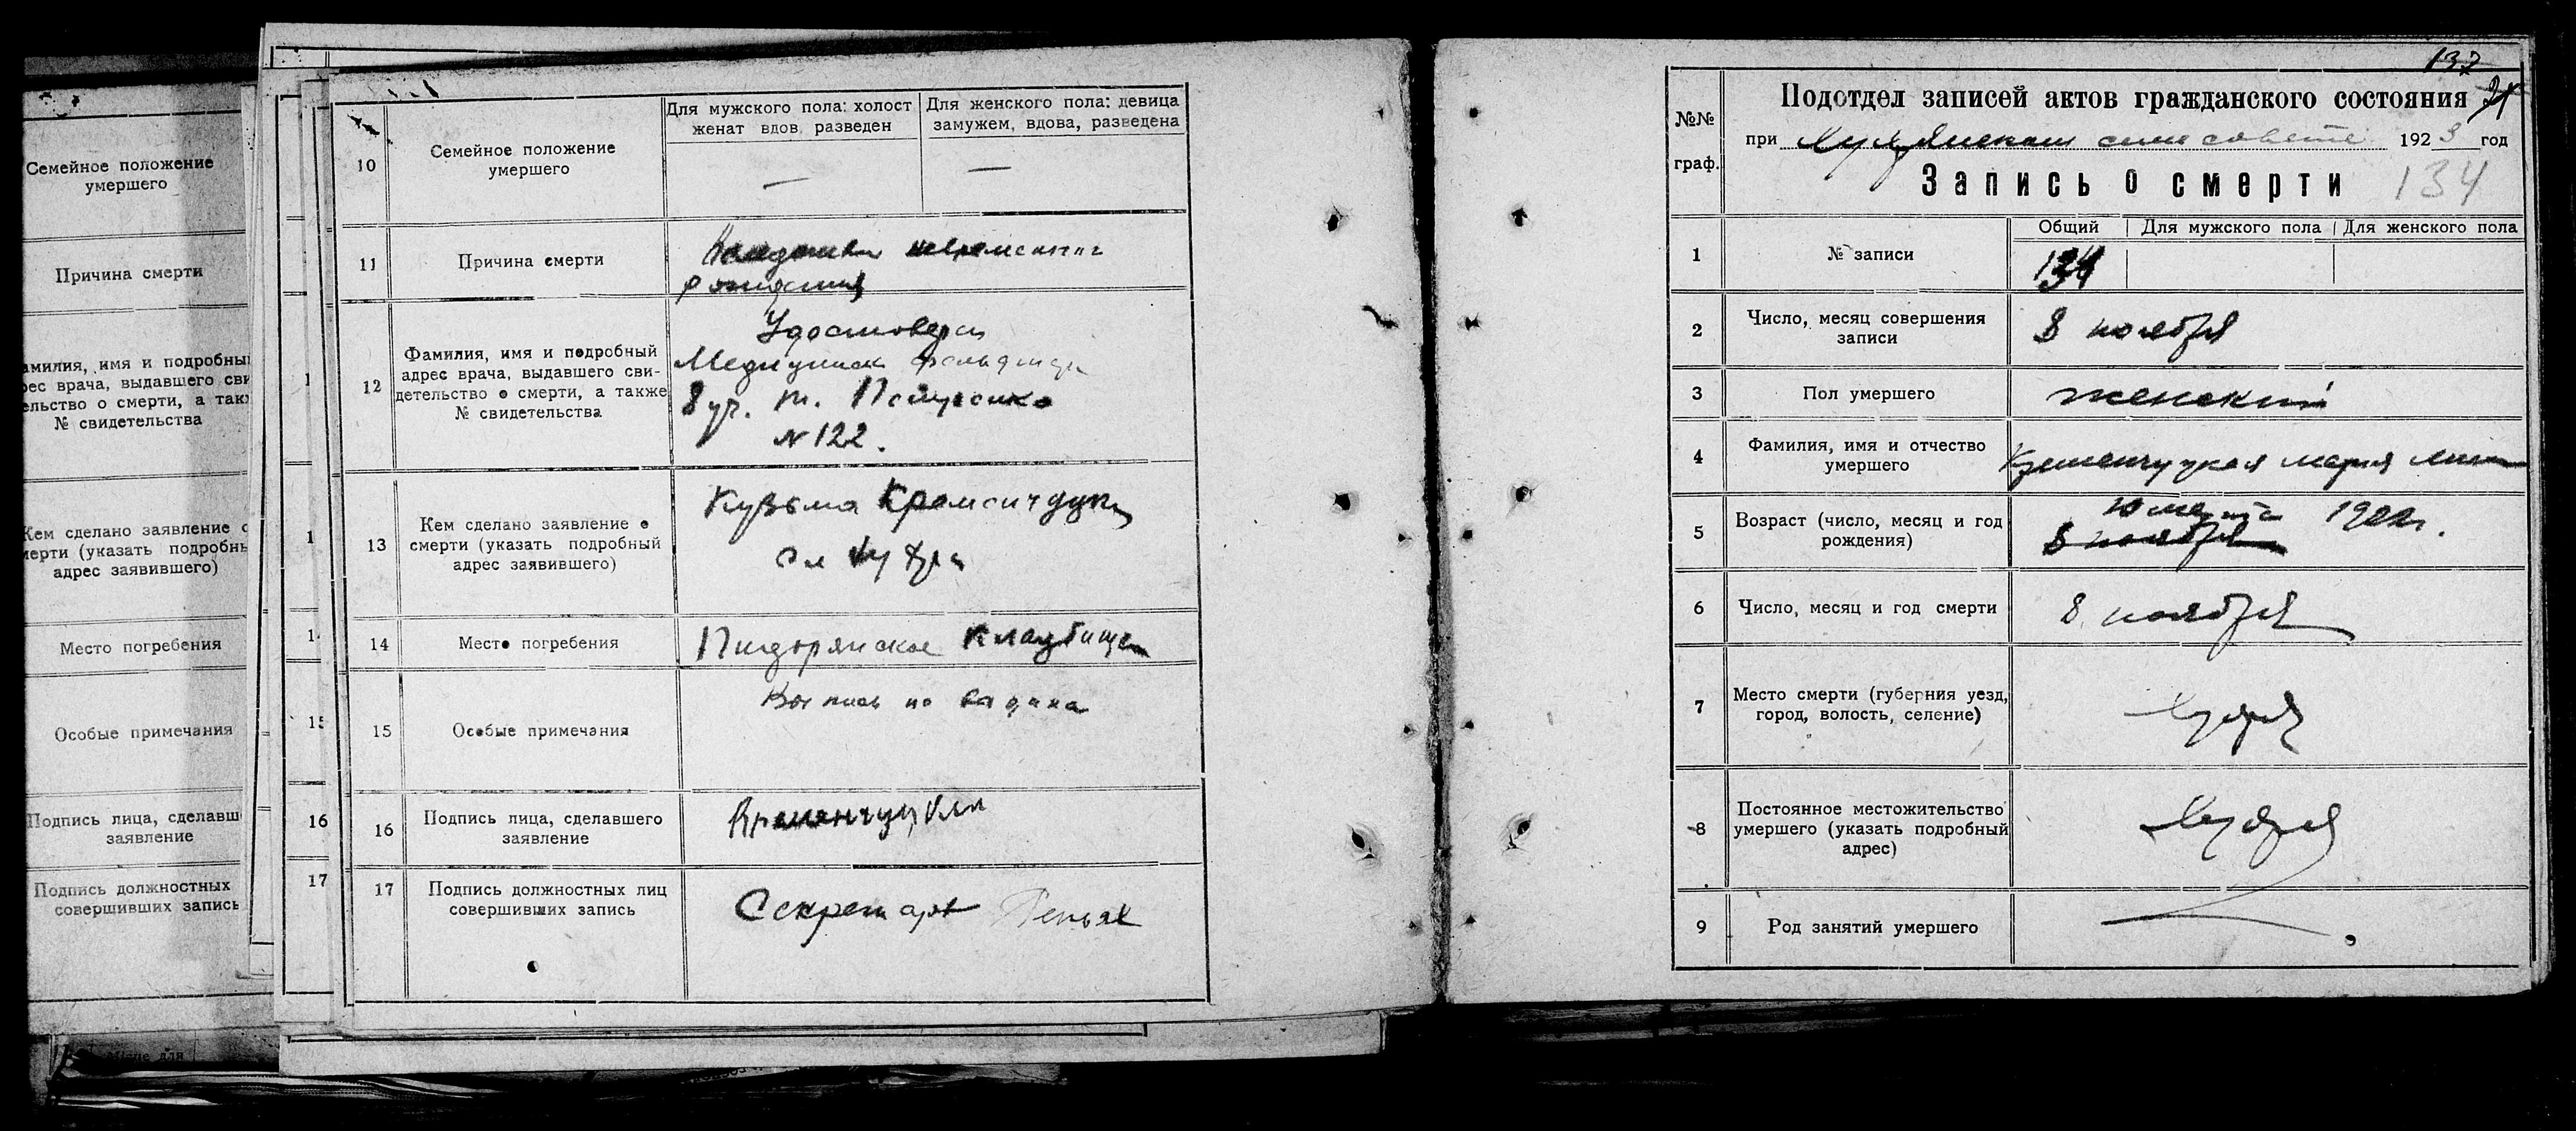 Семейное положение
умершего
Причина смерти
амилия, имя и подробны
рес врача, выдавшего сви
ельство о смерти, а такж
№ свидетельства
Кем сделано заявление о
мерти (указать подробны
адрес заявившего)
Место погребения
Особые примечания
Подпись лица, сделавш
заявление
Подпись должностных
совершивших запись
15
16
17
10
Семейное положение
умершего
Для мужского пола: холост
женат вдов разведен
Для женского пола: девица
замужем, вдова, разведена
—
—
11
Причина смерти
рождения
12
Фамилия, имя и подробный
адрес врача, выдавшего сви-
детельство о смерти, а также
№ свидетельства
Удостоверен
8 уч. т.
№ 122.
13
Кем сделано заявление о
смерти (указать подробный
адрес заявившего)
Кузьма
14
Место погребения
кладбище
15
Особые примечания
16
Подпись лица, сделавшего
заявление
17
Подпись должностных лиц
совершивших запись
Секретарь
137
№№
граф.
Подотдел записей актов гражданского состояния
при сельсовете 1923 год
Запись о смерти 134
1
№ записи
Общий
Для мужского пола
Для женского пола
134
2
Число, месяц совершения
записи
8 ноября
3
Пол умершего
женский
4
Фамилия, имя и отчество
умершего
Кременчуцкая Мария
5
Возраст (число, месяц и год
рождения)
8 ноября
6
Число, месяц и год смерти
8 ноября
7
Место смерти (губерния уезд,
город, волость, селение)
8
Постоянное местожительство
умершего (указать подробный
адрес)
9
Род занятий умершего
—